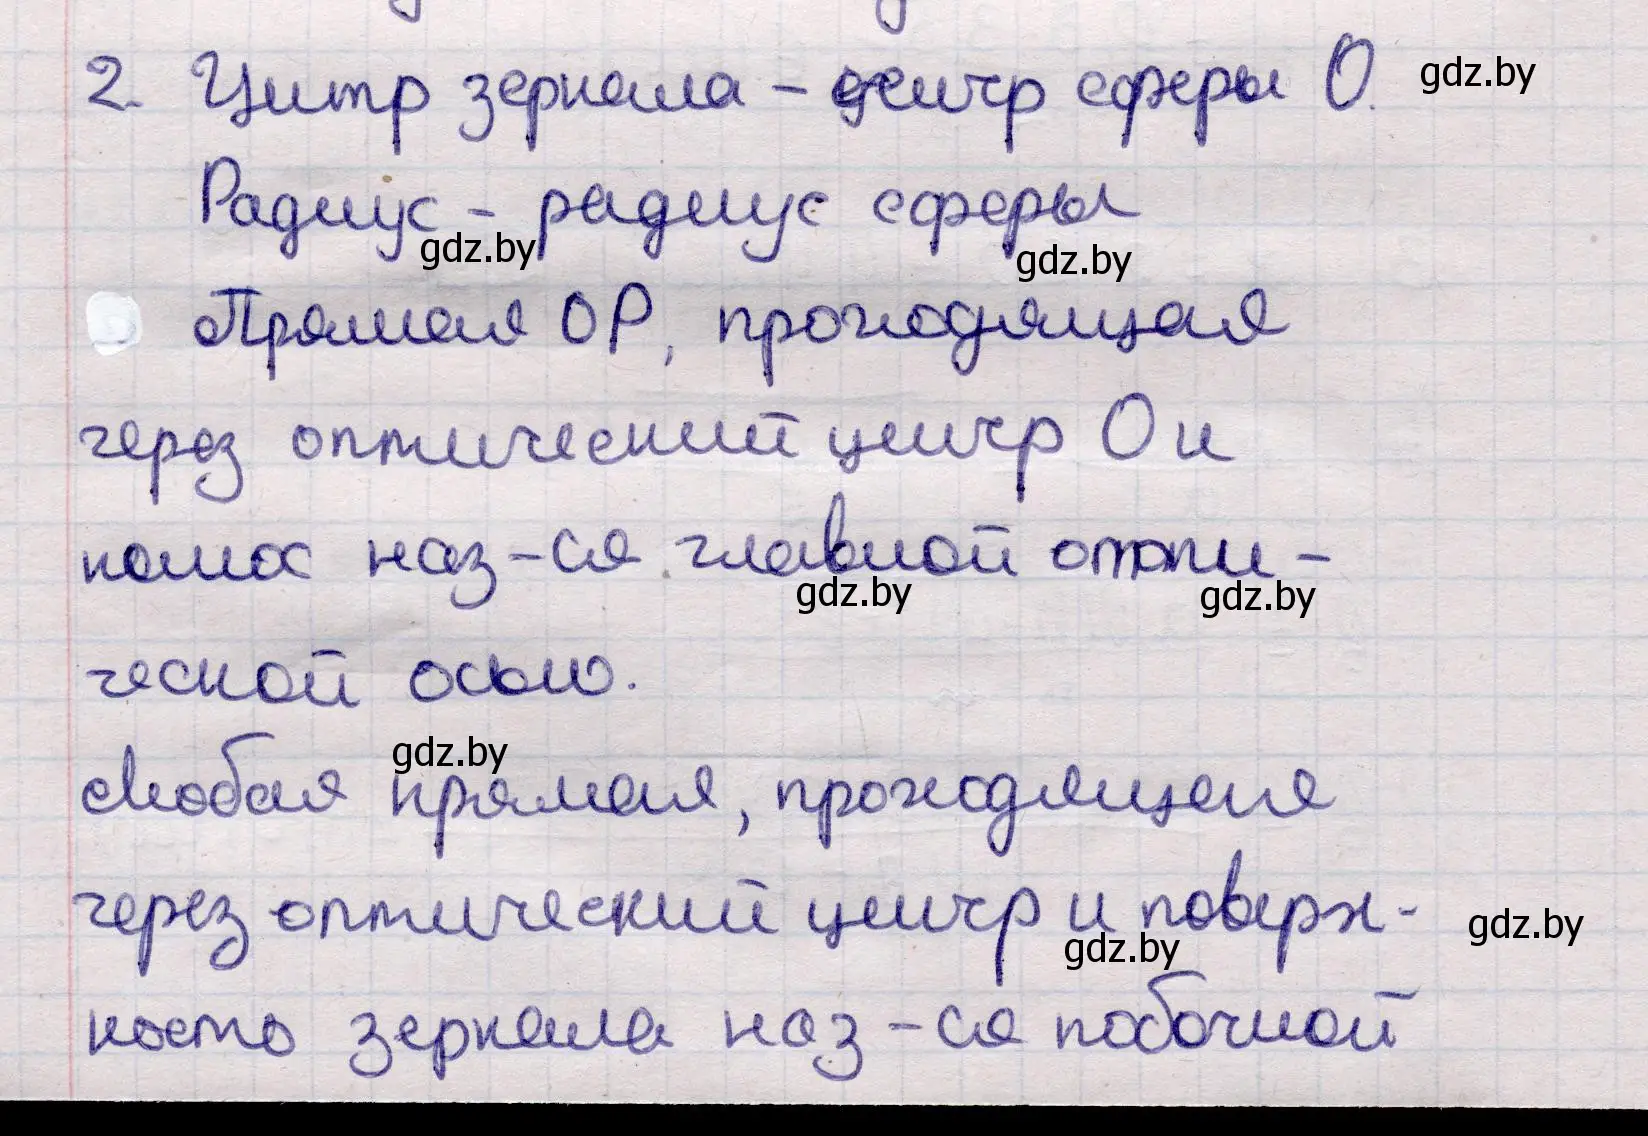 2. Центр зеркала – центр сферы О.
gdz.by
Радиус – радиус сферы
gdz.by
gdz.by
Прямая ОР, проходящая
через оптический центр О и
полюс наз-ся главной опти-
gdz.by
gdz.by
ческой осью.
gdz.by
Любая прямая, проходящая
через оптический центр и поверх-
gdz.by
gdz.by
ность зеркала наз-ся побочной